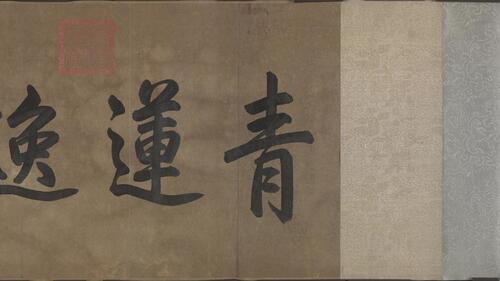 青蓮逸